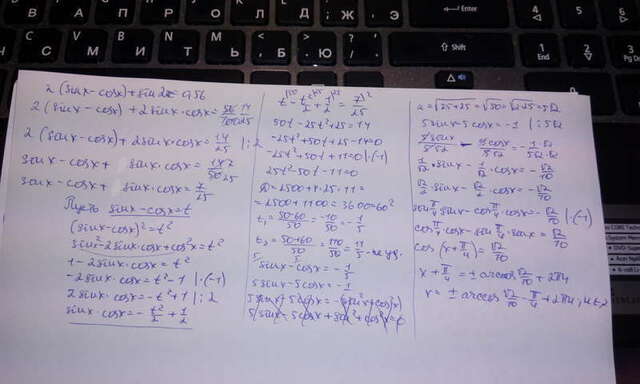 Enter
Shift
1
End
2
3
PgDn
4
5
6
2(sinx-cosx)+sin2x=0,56
2(sinx-cosx)+2sinx·cosx=14/25
2(sinx-cosx)+2sinxcosx=14/25 |:2
sinx-cosx+ sinx·cosx=7/25
sinx-cosx+ sinx·cosx=7/25
Пусть sinx-cosx=t
(sinx-cosx)²=t²
sin²-2sinx·cosx+cos²x=t²
1-2sinx·cosx=t²
-2sinx·cosx=t²-1 |·(-1)
2sinx·cosx=-t²+1 |:2
sinx·cosx=-t²/2+1/2
t-t²/2+1/2=7/25
50t-25t²+25=14
-25t²+50t+25-14=0
-25t²+50t+11=0 |·(-1)
25t²-50t-11=0
D=2500+4·25·11=
=2500+1100=3600=60²
t₁=50-60/50=-10/50=-1/5
t₂=50+60/50=110/50=11/5-не уд.
sinx-cosx=-1/5
5sinx-5cosx=-1
a=√25+25=√50=√2·25=5√2
5sinx-5cosx=-1 |:5√2
5sinx/5√2-5cosx/5√2=-1·√2/5√2·√2
1/√2·sinx-1/√2·cosx=-√2/10
√2/2·sinx-√2/2·cosx=-√2/10
sinπ/4·sinx-cosπ/4·cosx=-√2/10 |·(-1)
cosπ/4·cosx-sinπ/4·sinx=√2/10
cos(x+π/4)=√2/10
x+π/4=±arccos√2/10+2πn
x=±arccos√2/10-π/4+2πn, n∈Z